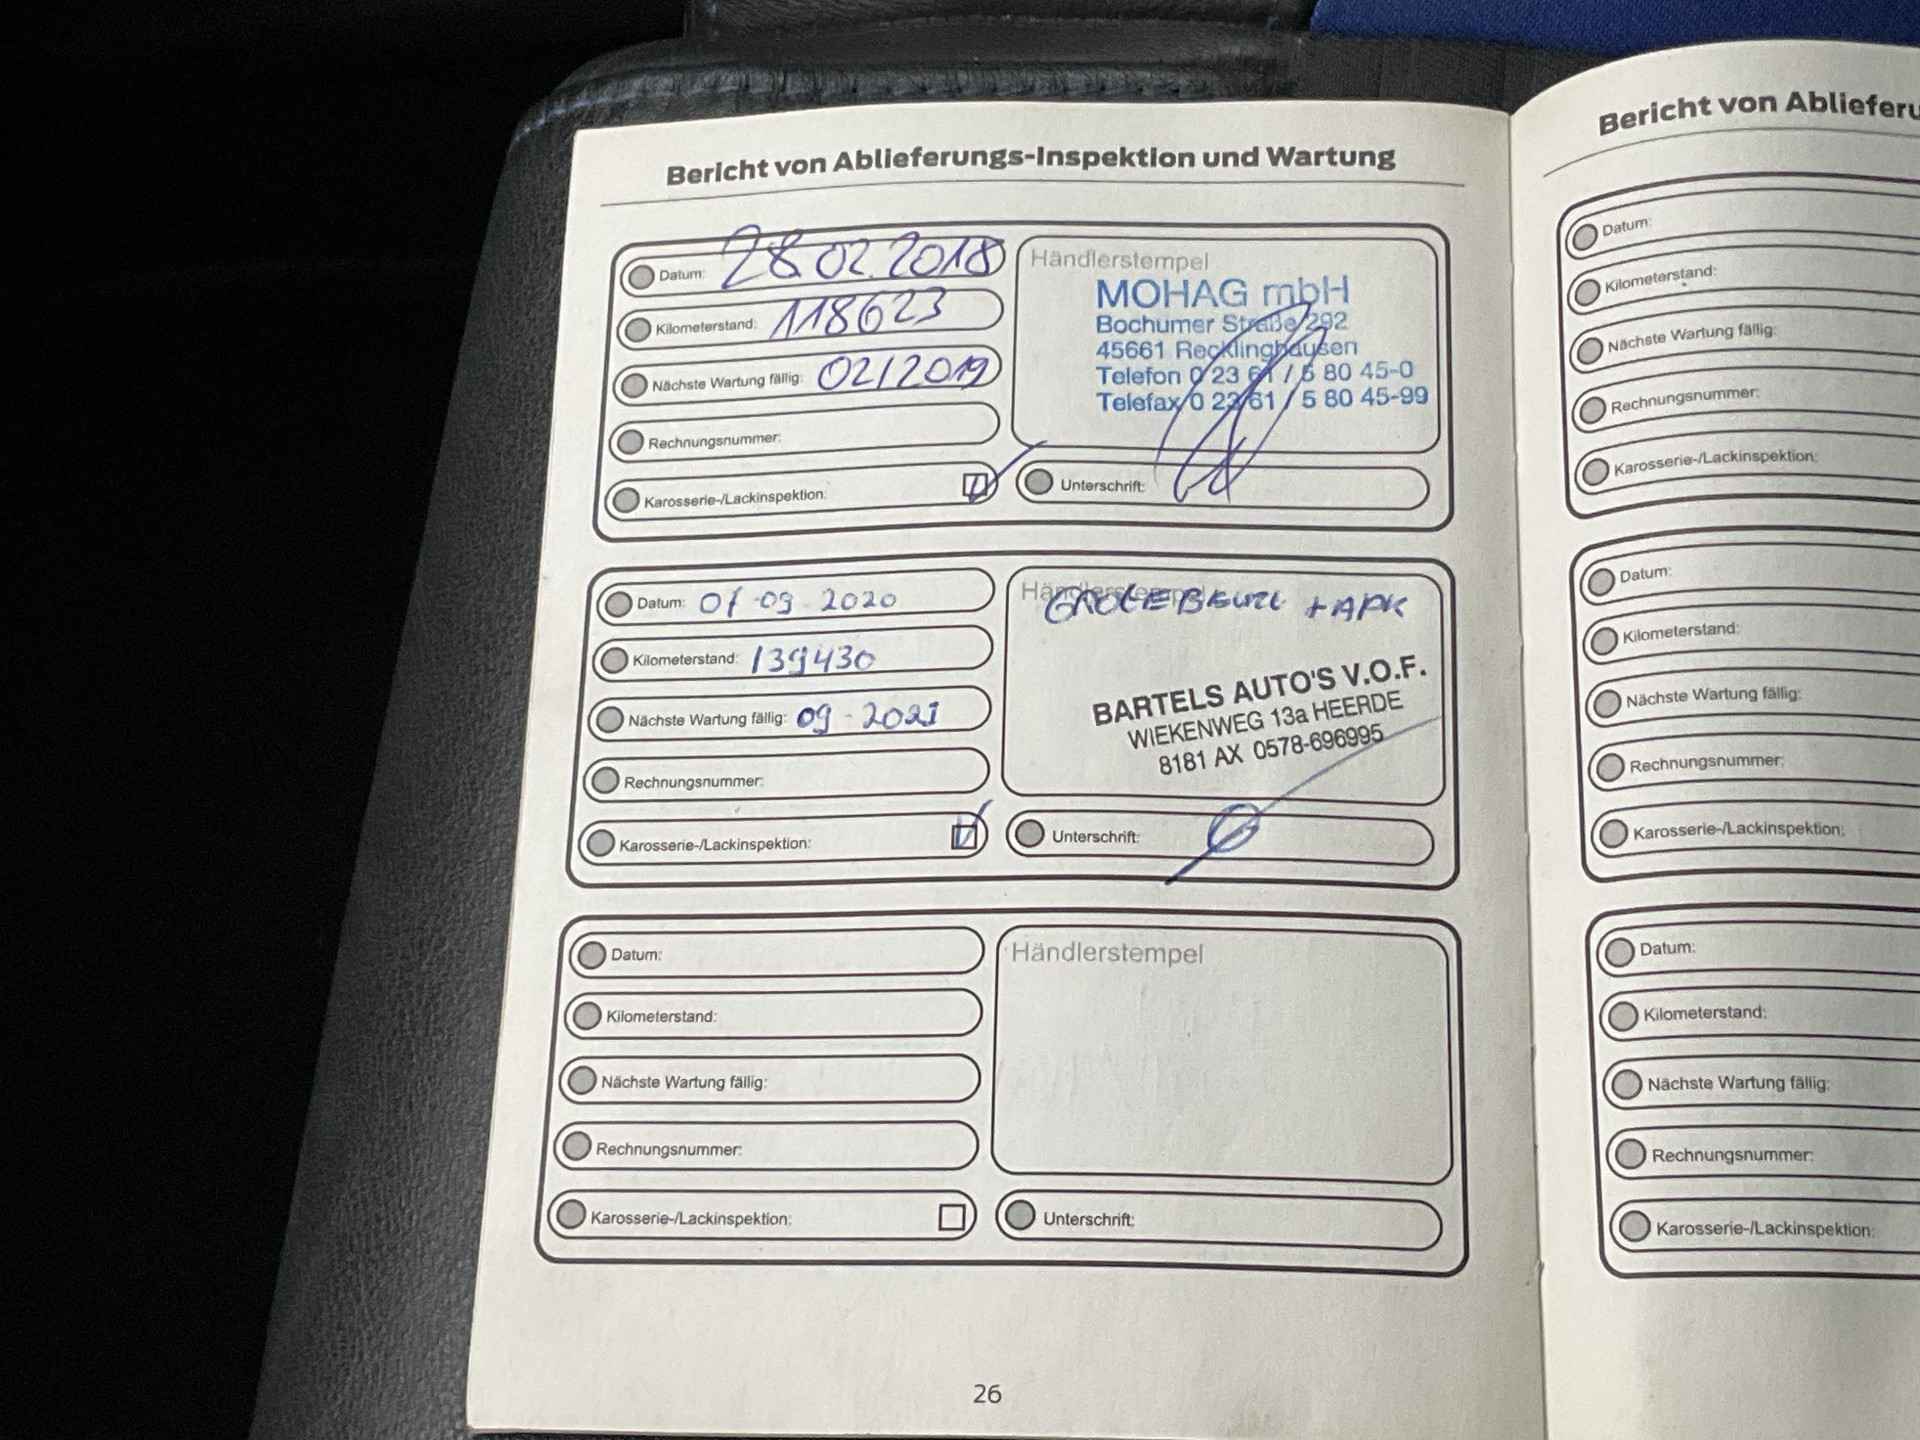 Bericht von Ablieferungs-Inspektion und Wartung
Datum: 28.02.2018
Kilometerstand: 118623
Nächste Wartung fällig: 02/2019
Rechnungsnummer:
Karosserie-/Lackinspektion:
Händlerstempel
MOHAG mbH
Bochumer Straße 292
45661 Recklinghausen
Telefon 0 23 61 / 5 80 45-0
Telefax 0 23 61 / 5 80 45-99
Unterschrift:
Datum: 01-09-2020
Kilometerstand: 139430
Nächste Wartung fällig: 09-2021
Rechnungsnummer:
Karosserie-/Lackinspektion:
Händlerstempel
GROTE BEURT + APK
BARTELS AUTO'S V.O.F.
WIEKENWEG 13a HEERDE
8181 AX 0578-696995
Unterschrift:
Datum:
Kilometerstand:
Nächste Wartung fällig:
Rechnungsnummer:
Karosserie-/Lackinspektion:
Händlerstempel
Unterschrift:
26
Bericht von Ablieferu
Datum:
Kilometerstand:
Nächste Wartung fällig:
Rechnungsnummer:
Karosserie-/Lackinspektion:
Datum:
Kilometerstand:
Nächste Wartung fällig:
Rechnungsnummer:
Karosserie-/Lackinspektion:
Datum:
Kilometerstand:
Nächste Wartung fällig:
Rechnungsnummer:
Karosserie-/Lackinspektion: